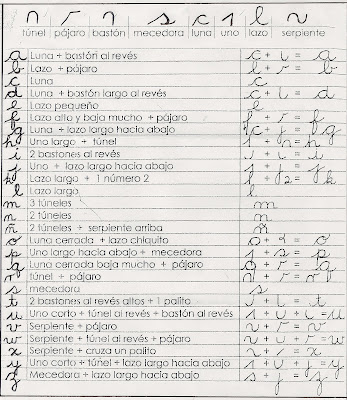 túnel pájaro bastón mecedora luna uno lazo serpiente
a Luna + bastón al revés c + i = a
b Lazo + pájaro l + r = b
c Luna c
d Luna + bastón largo al revés c + l = d
e Lazo pequeño e
f Lazo alto y baja mucho + pájaro
g Luna + lazo largo hacia abajo c + j = g
h Uno largo + túnel 1 + n = h
i 2 bastones al revés
j Uno + lazo largo hacia abajo
k Lazo largo + 1 número 2
l Lazo largo l
m 3 túneles m
n 2 túneles n
ñ 2 túneles + serpiente arriba ñ
o Luna cerrada + lazo chiquito
p Uno largo hacia abajo + mecedora 1 + s = p
q Luna cerrada baja mucho + pájaro
r túnel + pájaro
s mecedora s
t 2 bastones al revés altos + 1 palito
u Uno corto + túnel al revés + bastón al revés
v Serpiente + pájaro
w Serpiente + túnel al revés + pájaro
x Serpiente + cruza un palito
y Uno corto + túnel + lazo largo hacia abajo
z Mecedora + lazo largo hacia abajo s + j = z